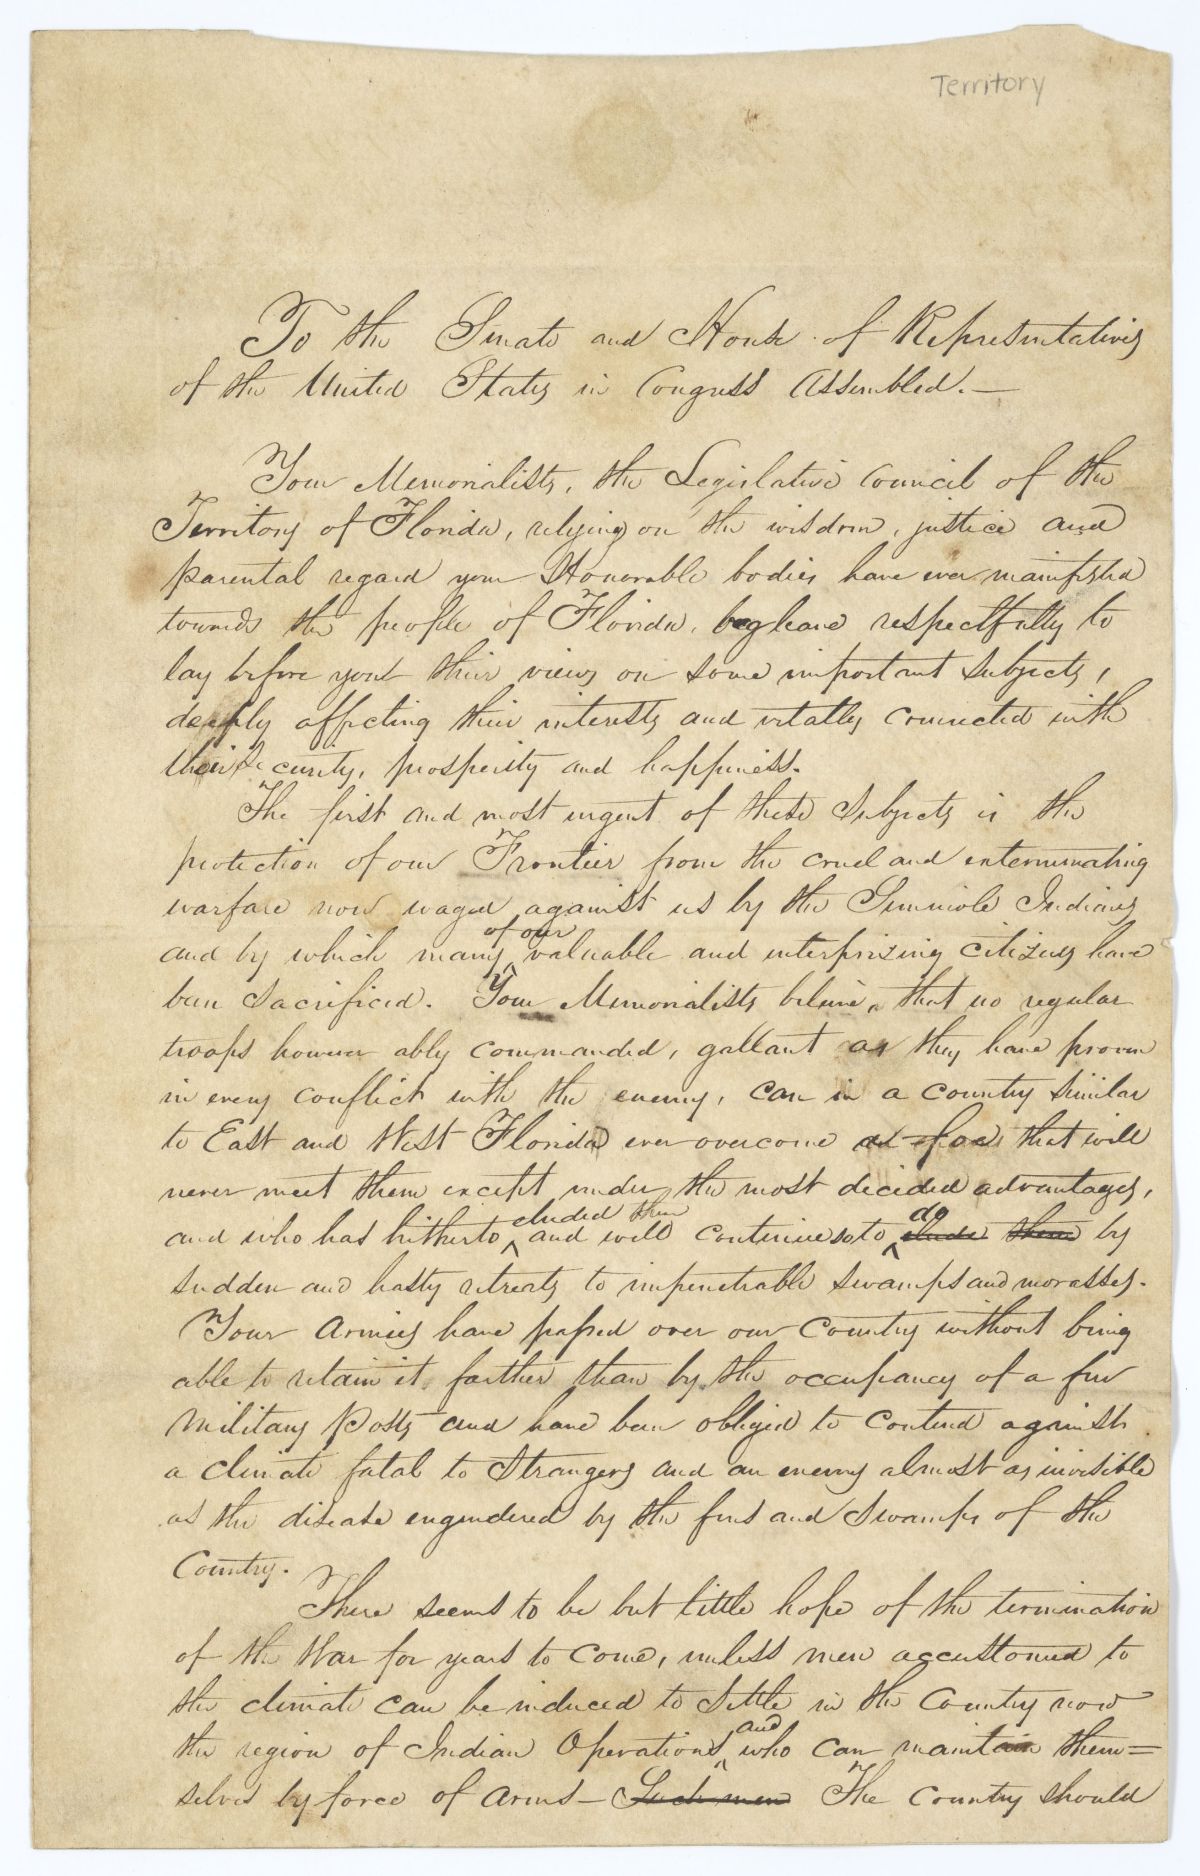 Territory
To the Senate and House of Representatives
of the United States in Congress Assembled.—
Your Memorialists, the Legislative Council of the
Territory of Florida, relying on the wisdom, justice and
parental regard your Honorable bodies have ever manifested
towards the people of Florida, beg leave respectfully to
lay before you their views on some important subjects,
deeply affecting their interests and vitally connected with
their security, prosperity and happiness.
The first and most urgent of these subjects is the
protection of our Frontier from the cruel and exterminating
warfare now waged against us by the Seminole Indians
and by which many of our valuable and interprizing citizens have
been sacrificed. Your Memorialists believe, that no regular
troops however ably commanded, gallant as they have proven
in every conflict with the enemy, can in a country similar
to East and West Florida ever overcome a foe that will
never meet them except under the most decided advantages,
and who has hitherto eluded them and will continue so to do elude them by
sudden and hasty retreats to impenetrable swamps and morasses.
Your Armies have passed over our Country without being
able to retain it farther than by the occupancy of a few
Military Posts and have been obliged to contend against
a climate fatal to Strangers and an enemy almost as invisible
as the disease engendered by the fens and Swamps of the
Country.
There seems to be but little hope of the termination
of the War for years to come, unless men accustomed to
the climate can be induced to settle in the Country now
the region of Indian Operations, and who can maintain them=
selves by force of arms— Such men The Country should